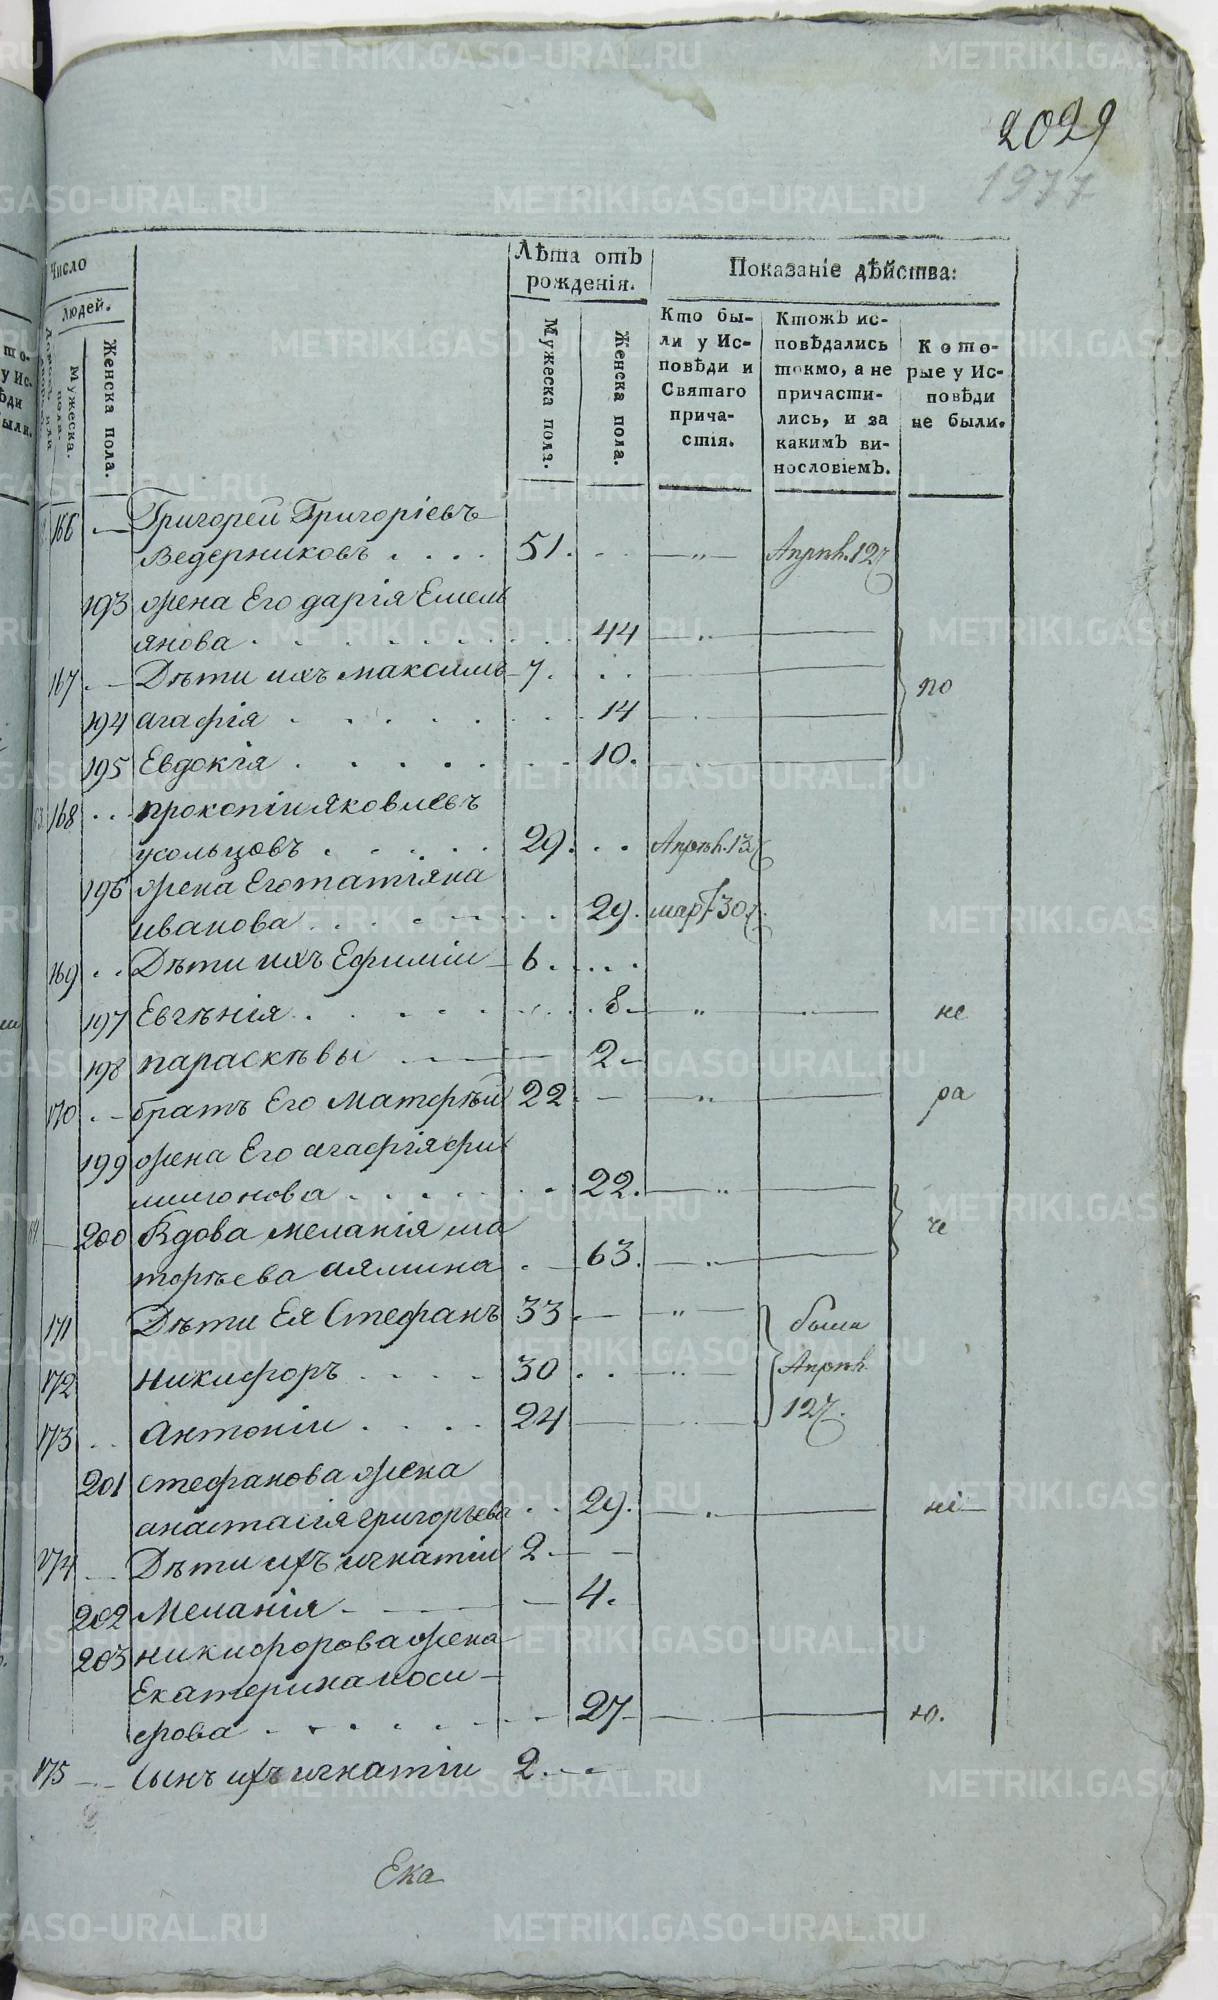 2029
1977
Число
людей.
Мужеска пола.
Женска пола.
Лѣта отъ
рожденія.
Мужеска пола.
Женска пола.
Показаніе дѣйства:
Кто бы-
ли у Ис-
повѣди и
Святаго
прича-
стія.
Ктожъ ис-
повѣдались
токмо, а не
причасти-
лись, и за
какимъ ви-
нословіемъ.
Кото-
рые у Ис-
повѣди
не были.
166 Григорей Григоріевъ
Ведерниковъ 51. Апрѣл. 12
193 жена Его дарія Емель
янова 44
167 Дѣти ихъ максимъ 7.
по
194 агафія 14
195 Евдокія 10.
168 прокопіи яковлевъ
укольцовъ 29. Апрѣл. 13
196 жена Его татіяна
иванова 29. мар 30
169 Дѣти ихъ Ефиміи 6.
197 Евгѣнія 8 не
198 параскѣвы 2
170 братъ Его Матфѣй 22 ра
199 жена Его агафія фи
лимонова 22.
200 Вдова меланія ма че
тофѣева 63.
171 Дѣти Ея Стефанъ 33 были
172 никифоръ 30 Апрѣл
173 Антоніи 24 12
201 стефанова жена
анастасія григорьева 29. ні
174 Дѣти ихъ игнатіи 2
202 Меланія 4.
203 никифорова жена
Екатерина иоси
фова 27 ю.
175 Сынъ ихъ игнатіи 2.
Ека
METRIKI.GASO-URAL.RU